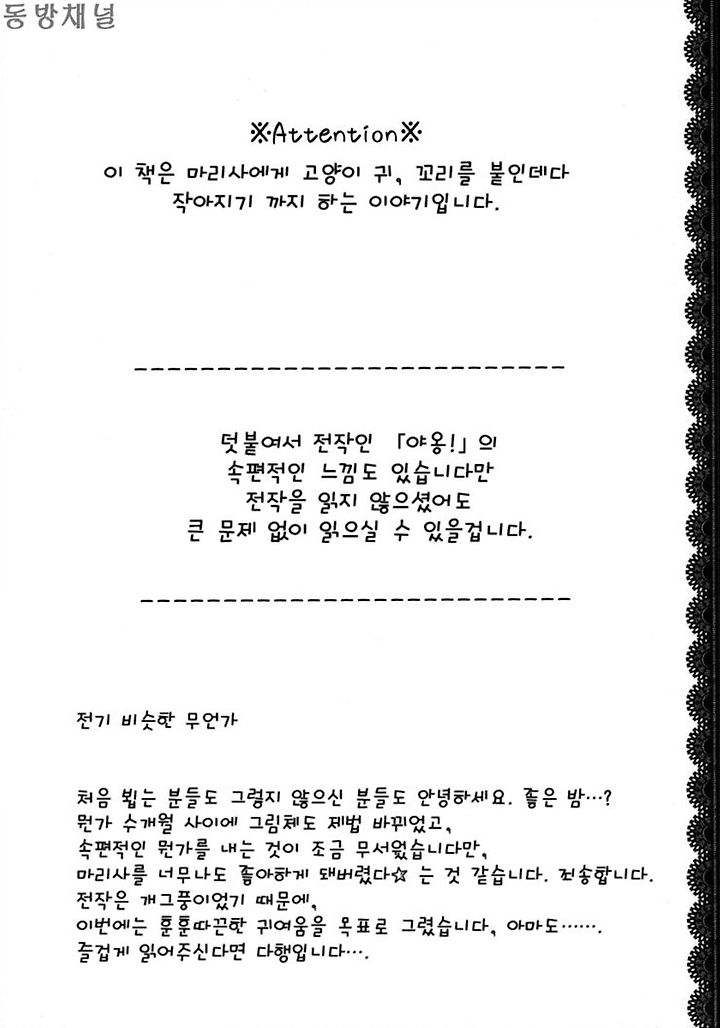 동방채널
※Attention※
이 책은 마리사에게 고양이 귀, 꼬리를 붙인데다
작아지기 까지 하는 이야기입니다.
덧붙여서 전작인 「야옹!」의
속편적인 느낌도 있습니다만
전작을 읽지 않으셨어도
큰 문제 없이 읽으실 수 있을겁니다.
전기 비슷한 무언가
처음 뵙는 분들도 그렇지 않으신 분들도 안녕하세요. 좋은 밤…?
뭔가 수개월 사이에 그림체도 제법 바뀌었고,
속편적인 뭔가를 내는 것이 조금 무서웠습니다만,
마리사를 너무나도 좋아하게 돼버렸다☆ 는 것 같습니다. 죄송합니다.
전작은 개그풍이었기 때문에,
이번에는 훈훈따끈한 귀여움을 목표로 그렸습니다, 아마도…….
즐겁게 읽어주신다면 다행입니다….